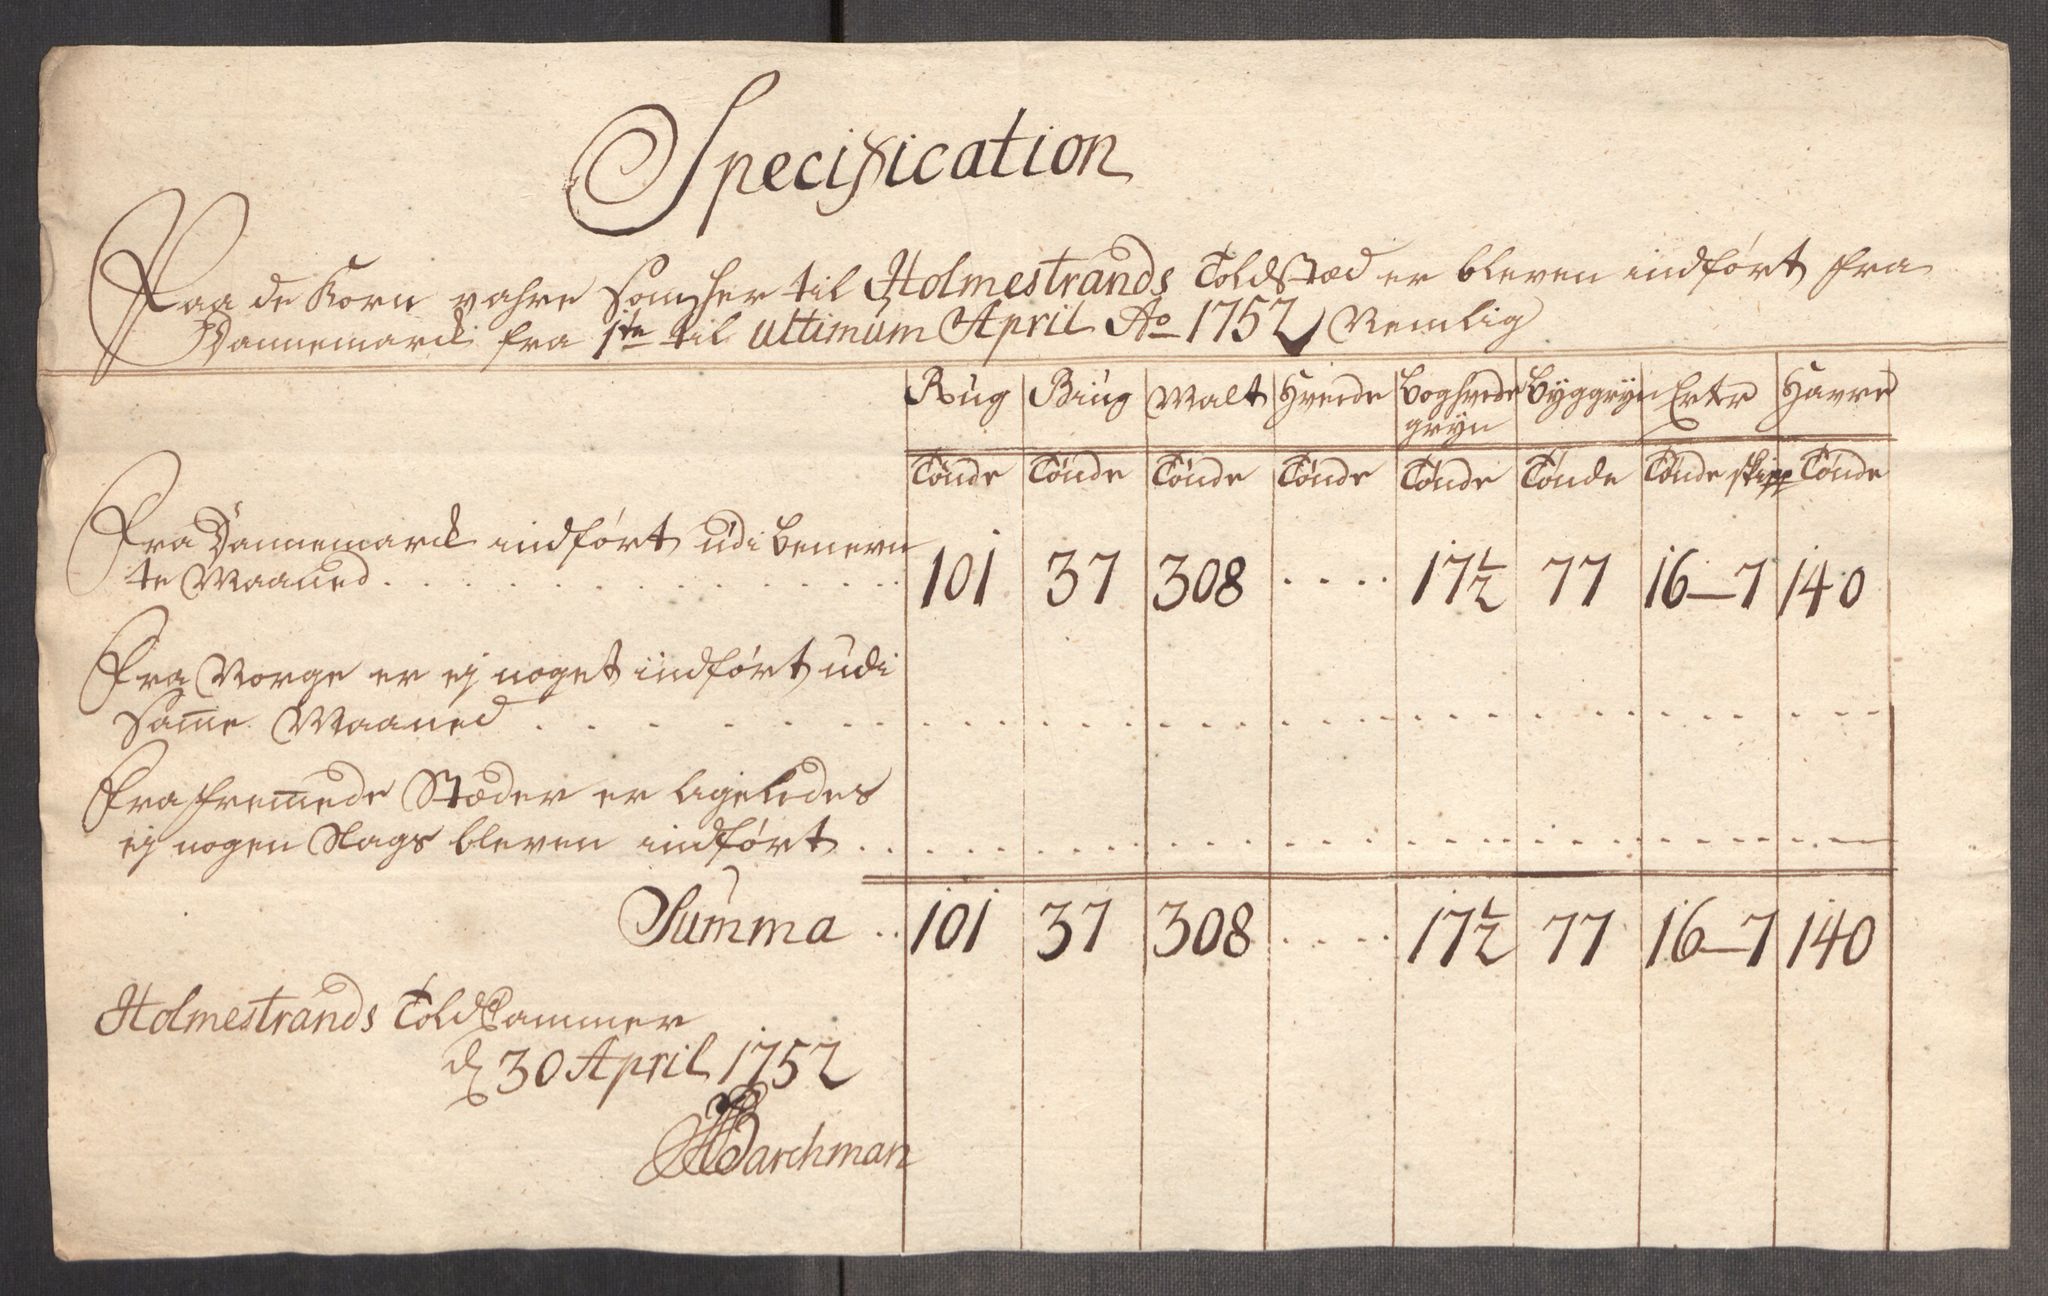 Specification
Paa de Korn vahre som her til Holmestrands Toldstæd er bleven indført fra
Dannemarck fra 1te til ultimum April Ao 1752 Nemlig
Rug Biug Malt Hvede Boghvede Byggryn Erter Havre
gryn
Tønde Tønde Tønde Tønde Tønde Tønde Tønde skipp Tønde
Fra Dannemarck indført udi benevn
te Maaned . . . . . . . . . 101 37 308 . . . . 17½ 77 16–7 140
Fra Norge er ej noget indført udi
Same Maaned . . . . . . . . .
Fra fremede Stæder er ligeledes
ej nogen Slags bleven indført . . . . . . . . .
Summa . . 101 37 308 . . . . 17½ 77 16–7 140
Holmestrands Toldkammer
d 30 April 1752
Barchman